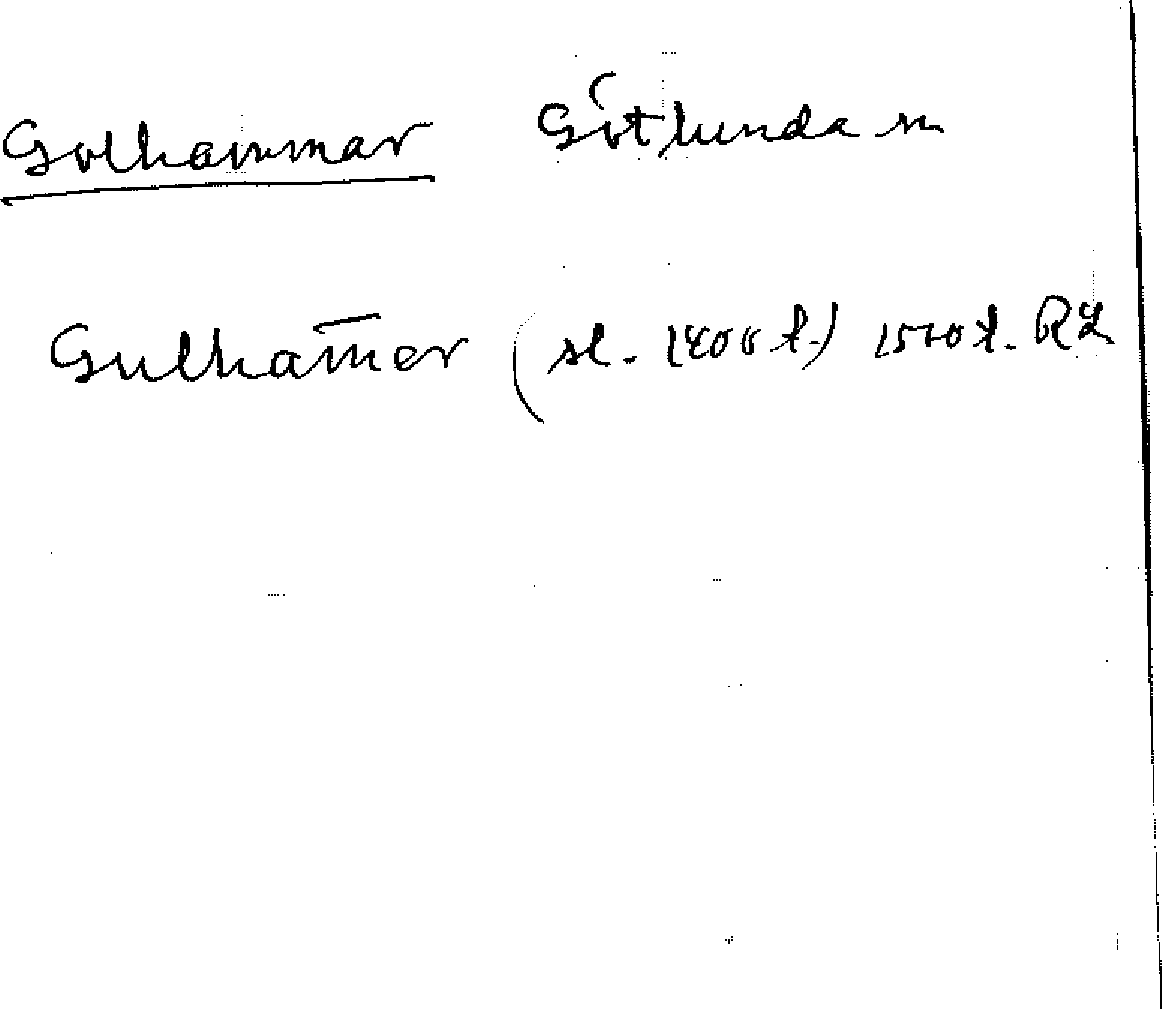 Golhammar Götlunda sn
Gulham̄er (sl. 1400 t.) 1510 t. RZ